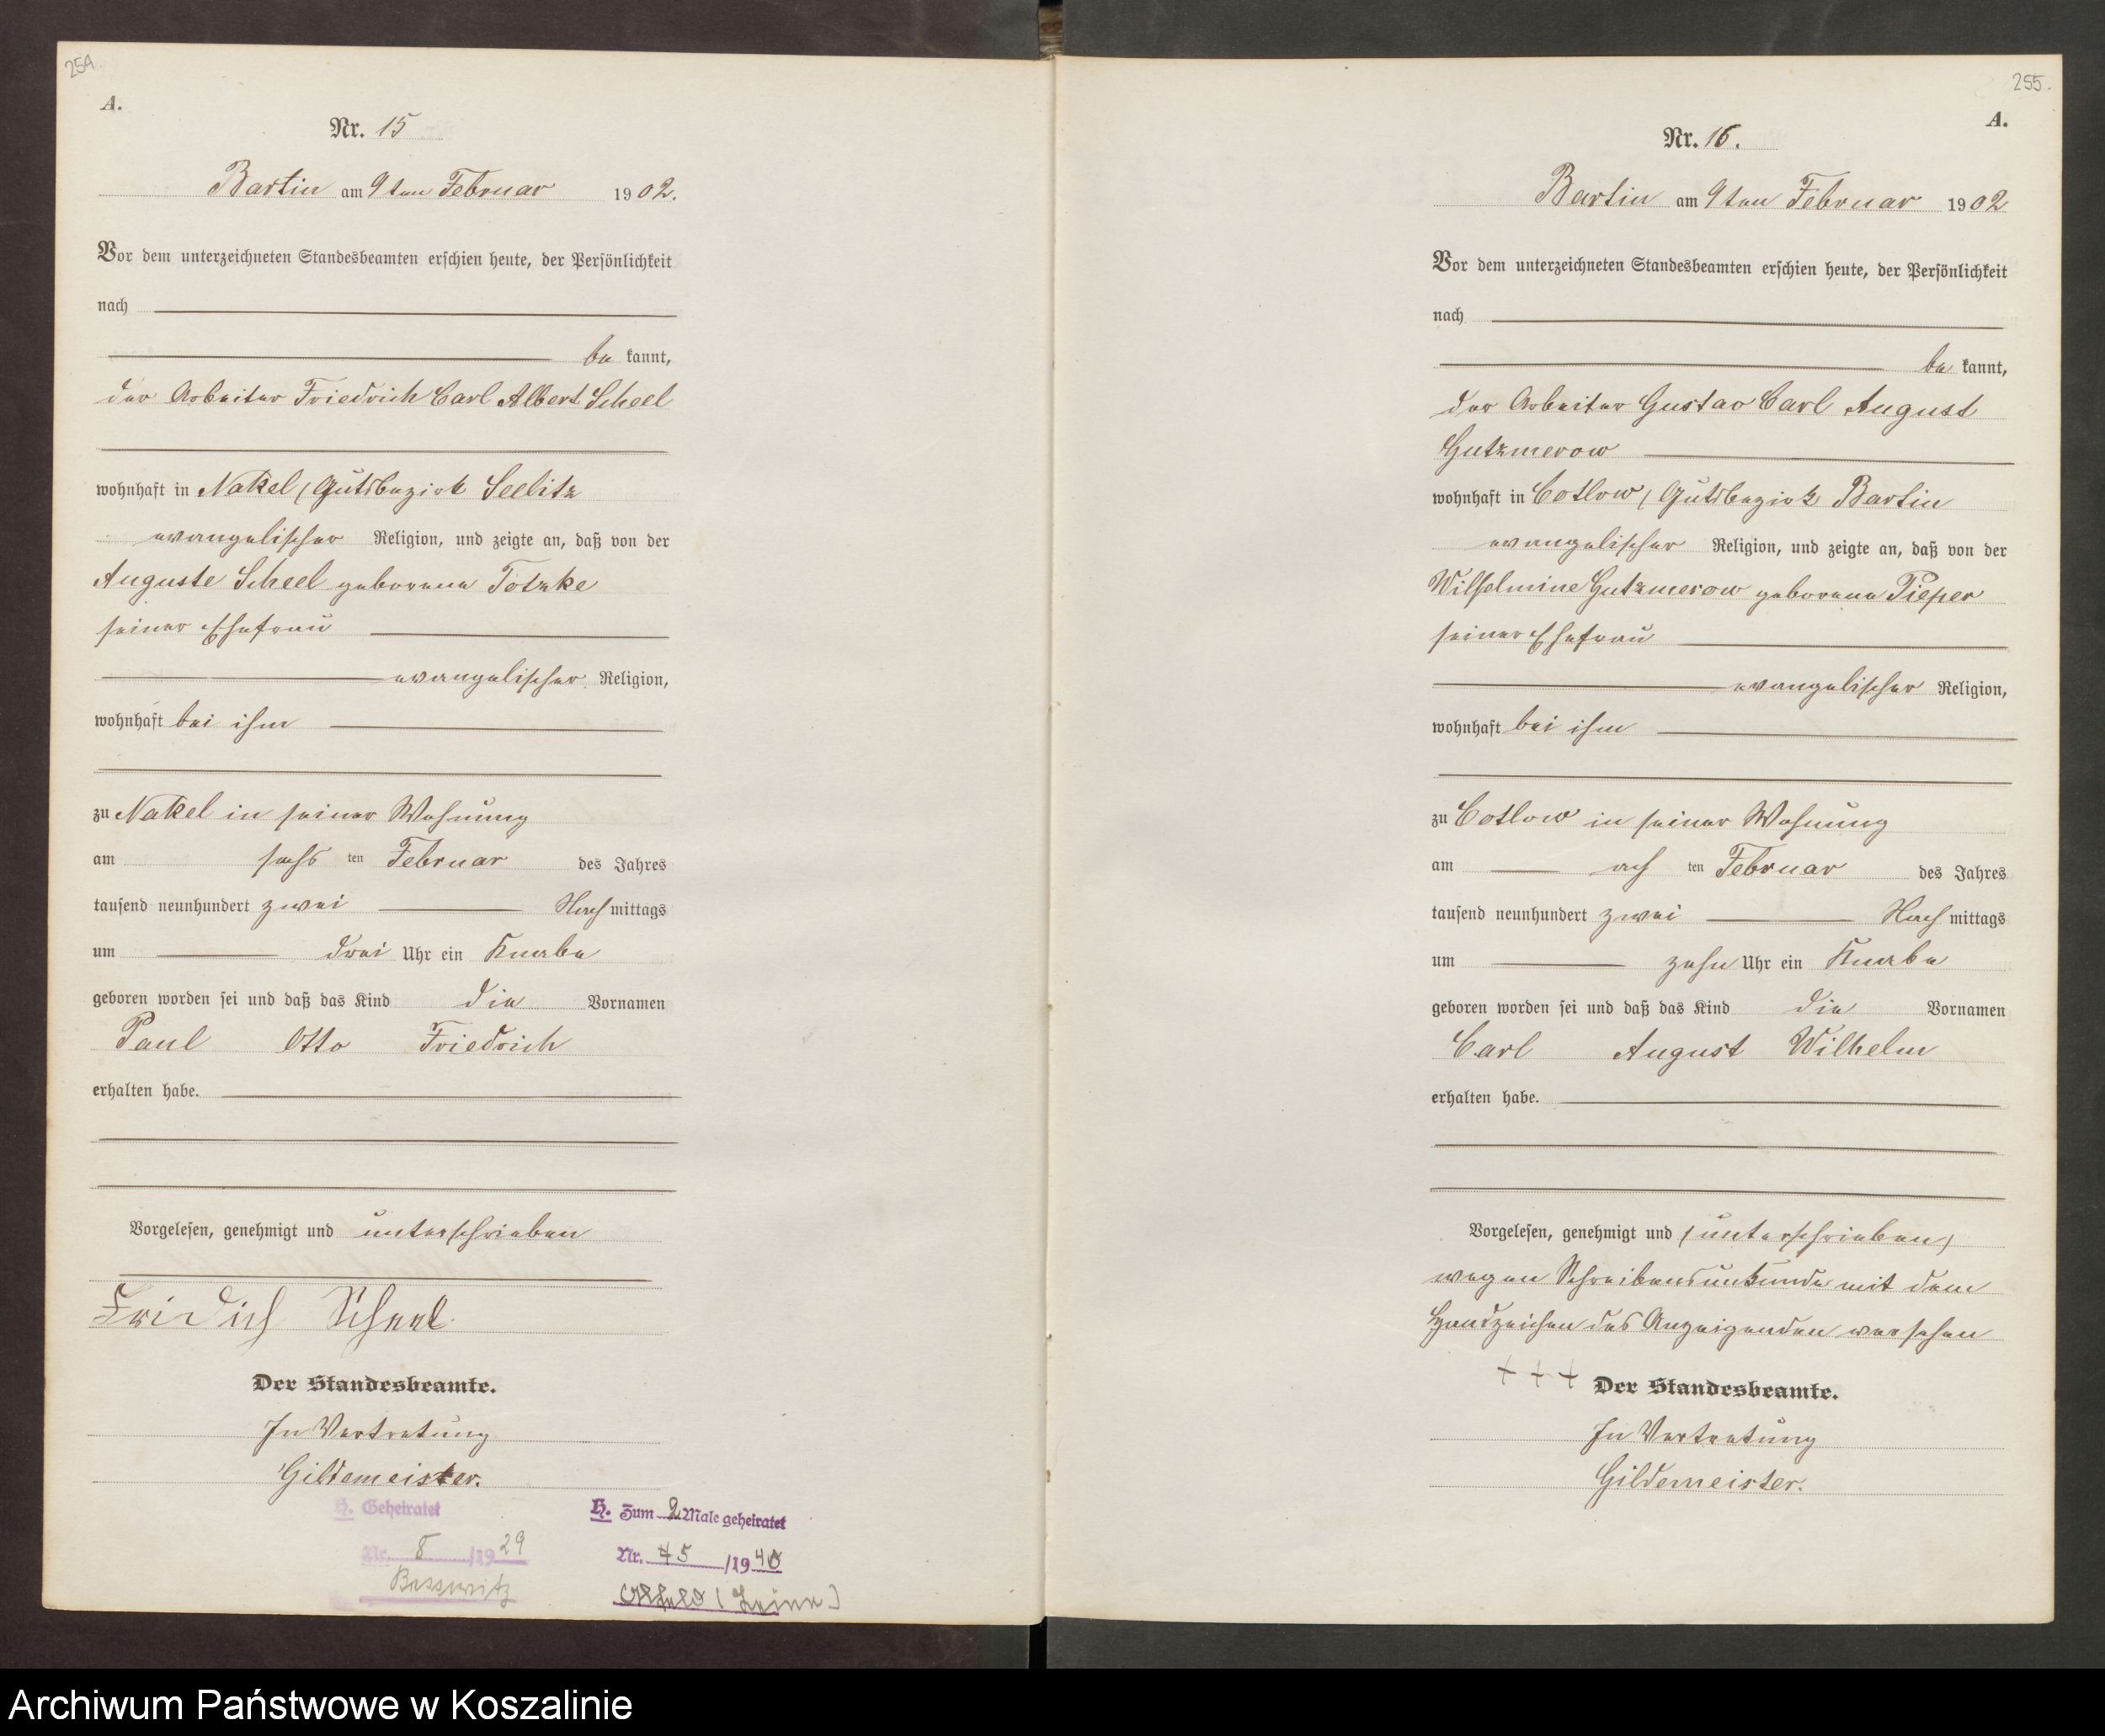 254.
A.
Nr. 15
Bartin am 9ten Februar 1902.
Vor dem unterzeichneten Standesbeamten erschien heute, der Persönlichkeit
nach
be kannt,
der Arbeiter Friedrich Carl Albert Scheel
wohnhaft in Nakel, Gutsbezirk Seelitz
evangelischer Religion, und zeigte an, daß von der
Auguste Scheel geborene Totzke
seiner Ehefrau
evangelischer Religion,
wohnhaft bei ihm
zu Nakel in seiner Wohnung
am sechs ten Februar des Jahres
tausend neunhundert zwei Nach mittags
um drei Uhr ein Knabe
geboren worden sei und daß das Kind die Vornamen
Paul Otto Friedrich
erhalten habe.
Vorgelesen, genehmigt und unterschrieben
Fridich Scheel.
Der Standesbeamte.
In Vertretung
Gildemeister.
H. Geheiratet
Nr. 8 /1929
Besswitz
H. Zum 2 Male geheiratet
Nr. 45 /1940
Alfeld (Leine)
255.
A.
Nr. 16.
Bartin am 9ten Februar 1902
Vor dem unterzeichneten Standesbeamten erschien heute, der Persönlichkeit
nach
be kannt,
der Arbeiter Gustav Carl August
Gutzmerow
wohnhaft in Cotlow, Gutsbezirk Bartin
evangelischer Religion, und zeigte an, daß von der
Wilhelmine Gutzmerow geborene Pieper
seiner Ehefrau
evangelischer Religion,
wohnhaft bei ihm
zu Cotlow in seiner Wohnung
am ach ten Februar des Jahres
tausend neunhundert zwei Nach mittags
um zehn Uhr ein Knabe
geboren worden sei und daß das Kind die Vornamen
Carl August Wilhelm
erhalten habe.
Vorgelesen, genehmigt und (unterschrieben)
wegen Schreibensunkunde mit dem
Handzeichen des Anzeigenden versehen
+ + +
Der Standesbeamte.
In Vertretung
Gildemeister.
Archiwum Państwowe w Koszalinie